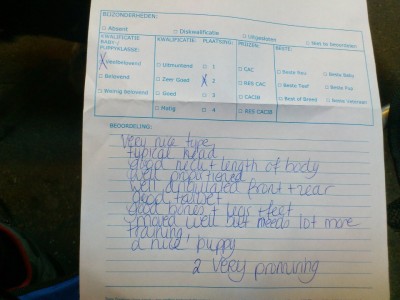 BIJZONDERHEDEN:
□ Absent □ Diskwalificatie □ Uitgesloten □ Niet te beoordelen
KWALIFICATIE BABY / PUPPYKLASSE: KWALIFICATIE: PLAATSING: PRIJZEN: BESTE:
X Veelbelovend □ Uitmuntend □ 1 □ CAC □ Beste Reu □ Beste Baby
□ Belovend □ Zeer Goed X 2 □ RES CAC □ Beste Teef □ Beste Pup
□ Weinig Belovend □ Goed □ 3 □ CACIB □ Best of Breed □ Beste Veteraan
□ Matig □ 4 □ RES CACIB
BEOORDELING:
Very nice type
typical head
good neck + length of body
well proportioned
well angulated front + rear
good tailset
good bones + legs + feet
moved well but needs lot more
training
a nice puppy
2 very promising